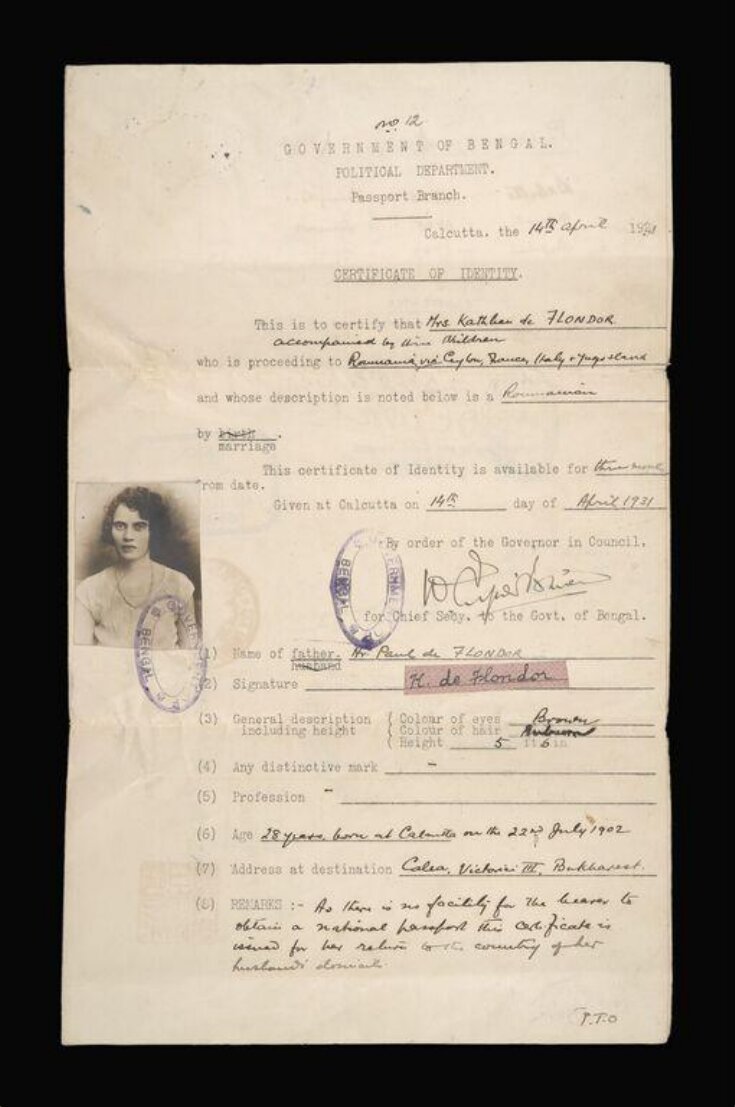 No. 12
GOVERNMENT OF BENGAL.
POLITICAL DEPARTMENT.
Passport Branch.
Calcutta. the 14th April 1931
CERTIFICATE OF IDENTITY.
This is to certify that Mrs Kathleen de FLONDOR
accompanied by three children
who is proceeding to Roumania via Ceylon, France, Italy & Yugoslavia
and whose description is noted below is a Roumanian
by birth.
marriage
This certificate of Identity is available for three
from date.
Given at Calcutta on 14th day of April 1931
By order of the Governor in Council.
for Chief Secy. to the Govt. of Bengal.
GOVERNMENT
BENGAL
GOVERNMENT
BENGAL
(1) Name of father. Mr Paul de FLONDOR
husband
(2) Signature K. de Flondor
(3) General description { Colour of eyes Brown
including height { Colour of hair
{ Height 5 ft 6 in
(4) Any distinctive mark -
(5) Profession -
(6) Age 28 years, born at Calcutta on the 22nd July 1902
(7) Address at destination Calea, Victoriei III, Bukharest.
(8) REMARKS :- As there is no facility for the bearer to
obtain a national passport this certificate is
issued for her return to the country of her
husband's domicile.
P.T.O